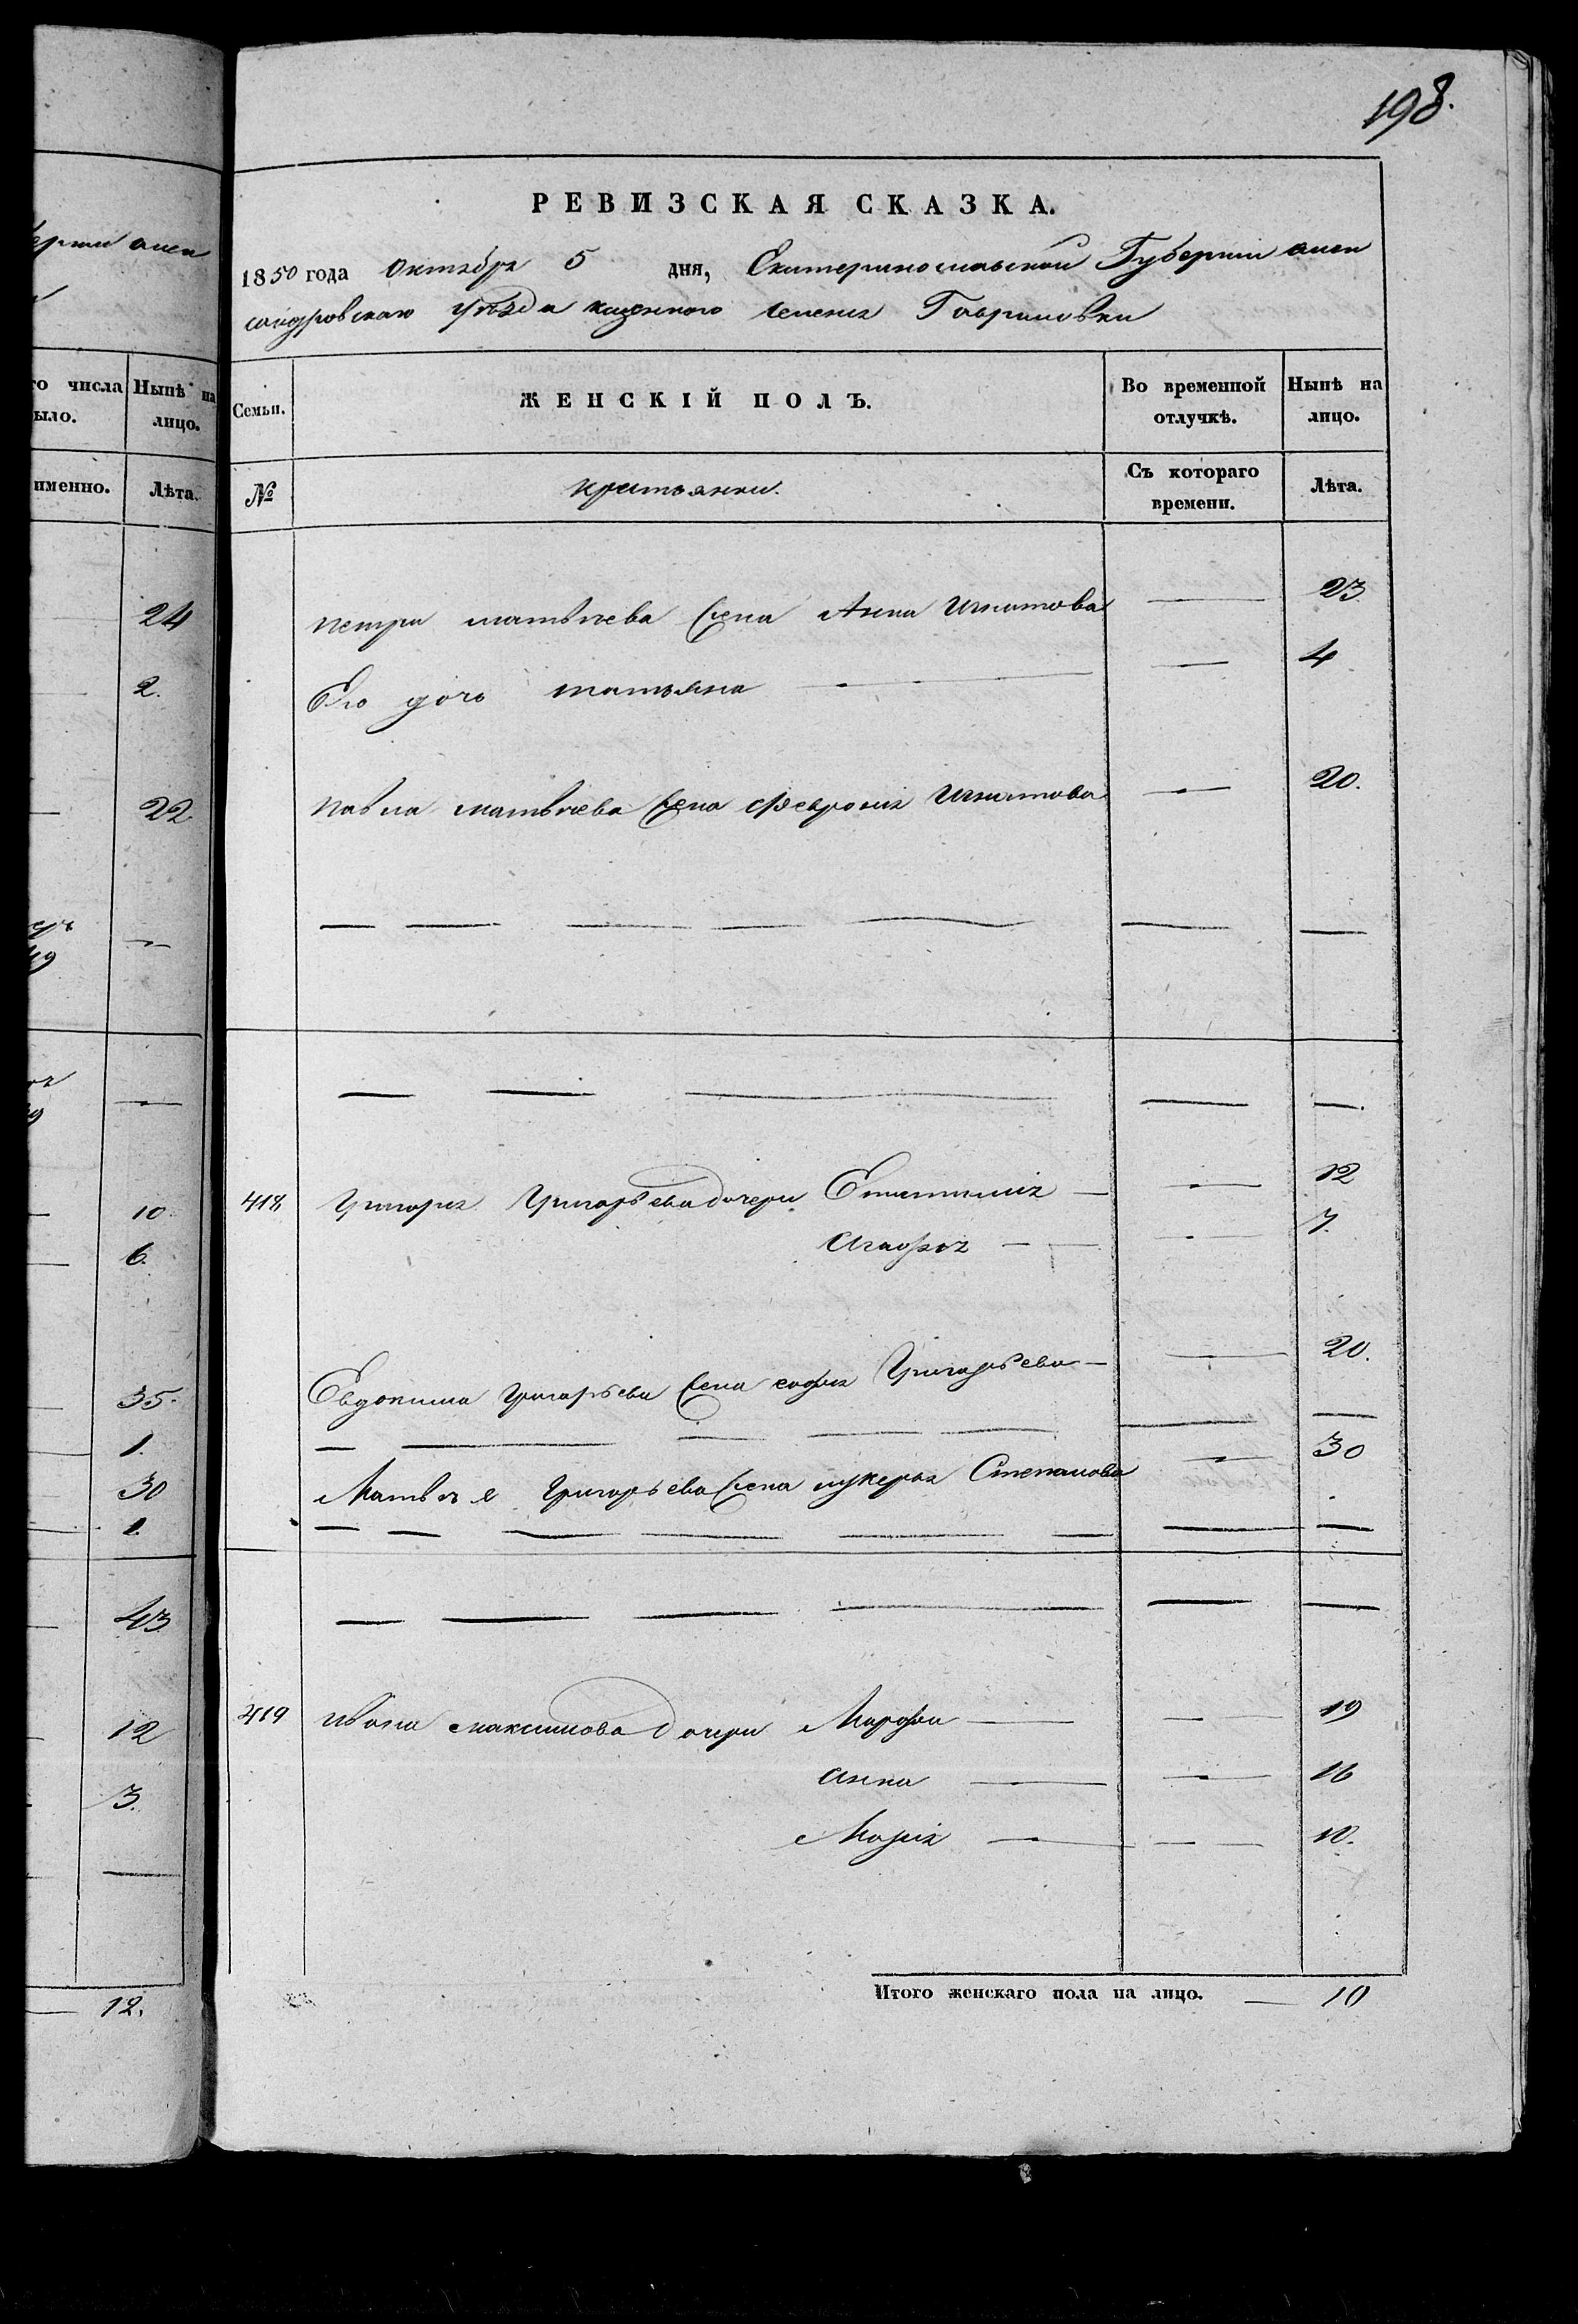 ерніи алек
го числа
было.
Нынѣ на
лицо.
именно.
Лѣта.
24
2.
22
49
10
6.
35.
1.
30
1.
43
12
3.
12.
198.
РЕВИЗСКАЯ СКАЗКА.
1850 года Октября 5 дня, Екатеринославской Губерніи алек
сандровскаго уѣзда казенного селенія Гавриловки
Семьи.
ЖЕНСКІЙ ПОЛЪ.
Во временной
отлучкѣ.
Нынѣ на
лицо.
№
крестьянки.
Съ котораго
времени.
Лѣта.
петра матвѣева жена Анна Игнатова — 23
Его дочь татьяна — — 4
павла матвѣева жена Феврония Игнатова — 20.
— — — — — — —
— — — — —.
418 Григорія Григорьева дочери Епистимия — — 12
Агафья — — — 7.
Евдокима Григорьева жена софья Григорьева — — 20.
— — — — — — —
Матвѣя Григорьева жена лукерья Степанова — 30
— — — — — — — —
— — — — — —
419 Ивана максимова дочери Марфа — — — 19
Анна — — 16
Марія — — — 10.
Итого женскаго пола на лицо. — 10